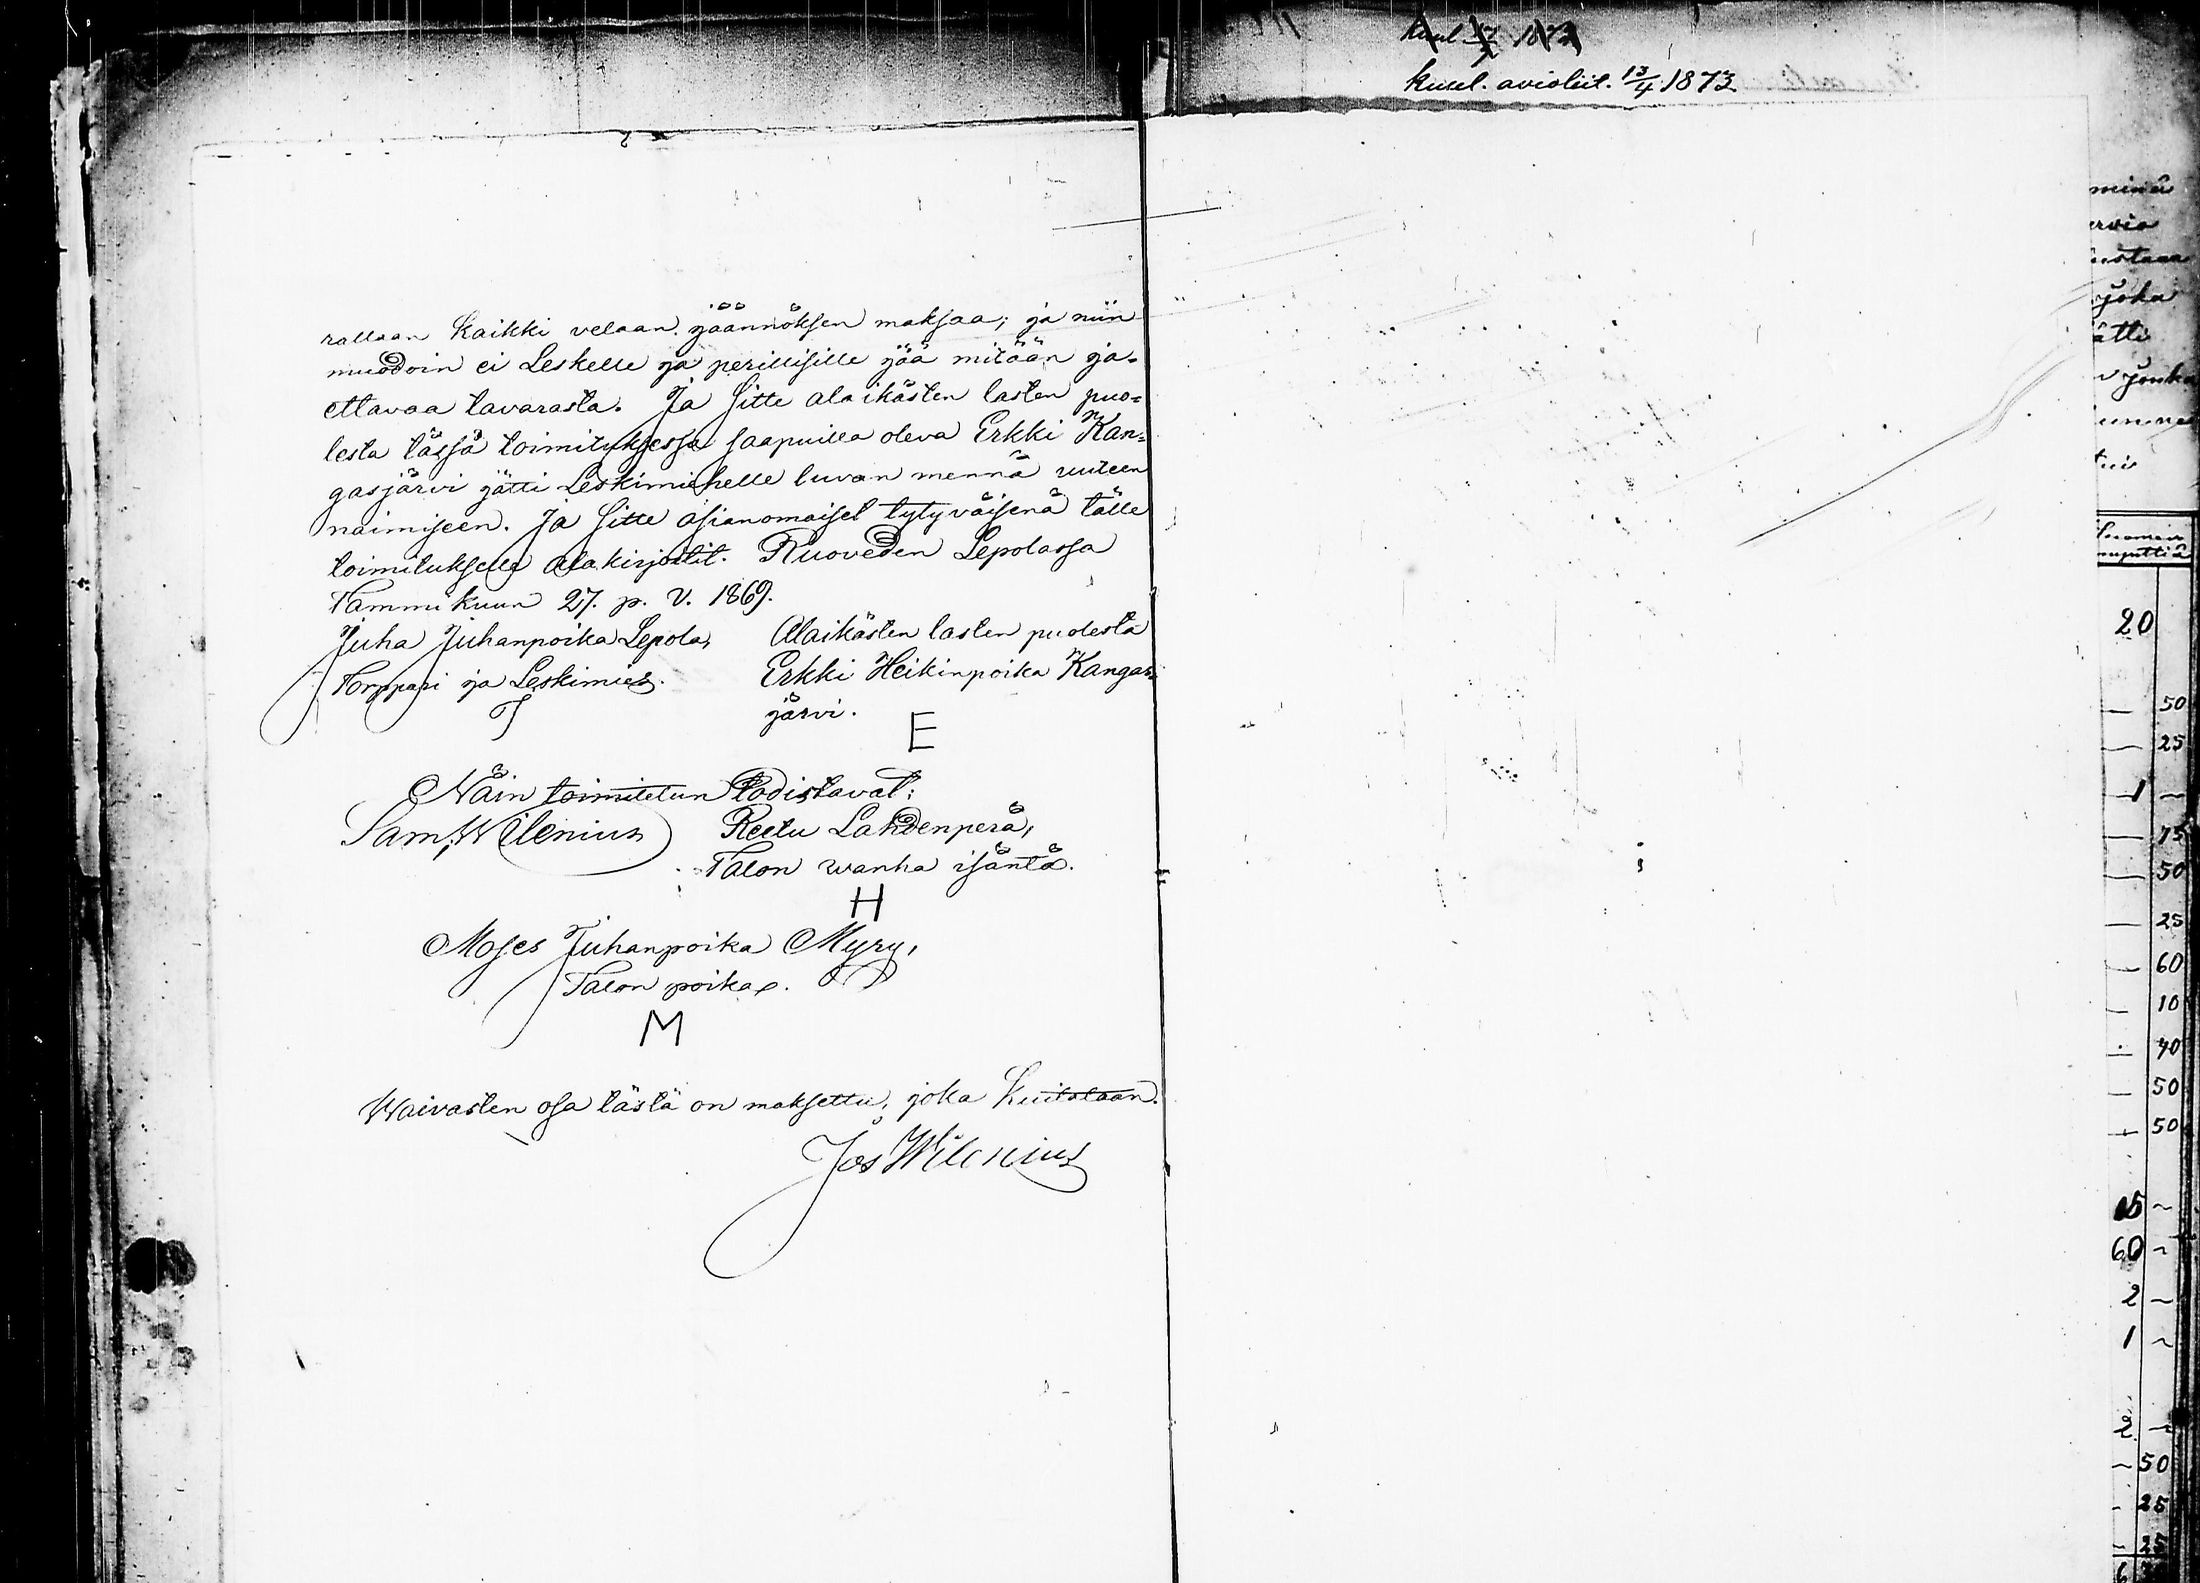 kuul. avioliit. 13/4 1873
rallaan kaikki velaan jäännöksen maksaa; ja niin
muodoin ei Leskelle ja perillisille jää mitään ja-
ettavaa tavarasta. Ja sitte alaikästen lasten puo=
lesta tässä toimituksessa saapuilla oleva Erkki Kan=
gasjärvi jätti Leskimiehelle luvan mennä uuteen
naimiseen. Ja sitte asianomaiset tytyväisenä tälle
toimitukselle alakirjoitit. Ruoveden Lepolassa
Tammikuun 27. p. v. 1869.
Juha Juhanpoika Lepola,
Torppari ja Leskimies.
Alaikästen lasten puolesta
Erkki Heikinpoika Kangas=
järvi.
E
Näin toimitetun todistavat:
Sam. Wilenius
Reetu Lahdenperä,
Talon wanha isäntä.
H
Moses Juhanpoika Myry,
Talon poika.
M
Waivasten osa tästä on maksettu, joka kuitataan.
Jos Wilenius
minä
joka
ätti
jonka
20
50
25
1 ~
75
50
25
60
10
70
50
50
15 ~
60 ~
2 ~
1 ~
2 ~
~ 50
25
25